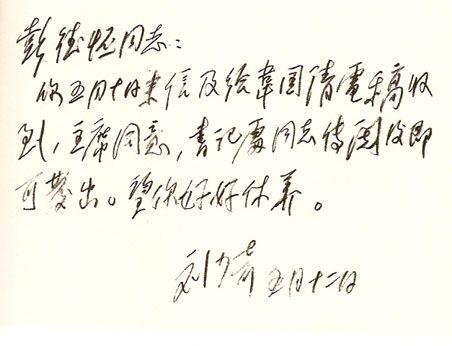 彭德怀同志：
你五月十日来信及给韦国清电稿收
到，主席同意，书记处同志传阅后即
可发出。望你好好休养。
刘少奇 五月十二日